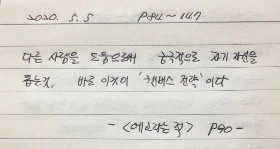 2020. 5. 5 P84~147
다른 사람을 도움으로써 궁극적으로 자기 자신을
돕는것, 바로 이것이 '캔버스 전략' 이다
- <에고라는 적> P90 -